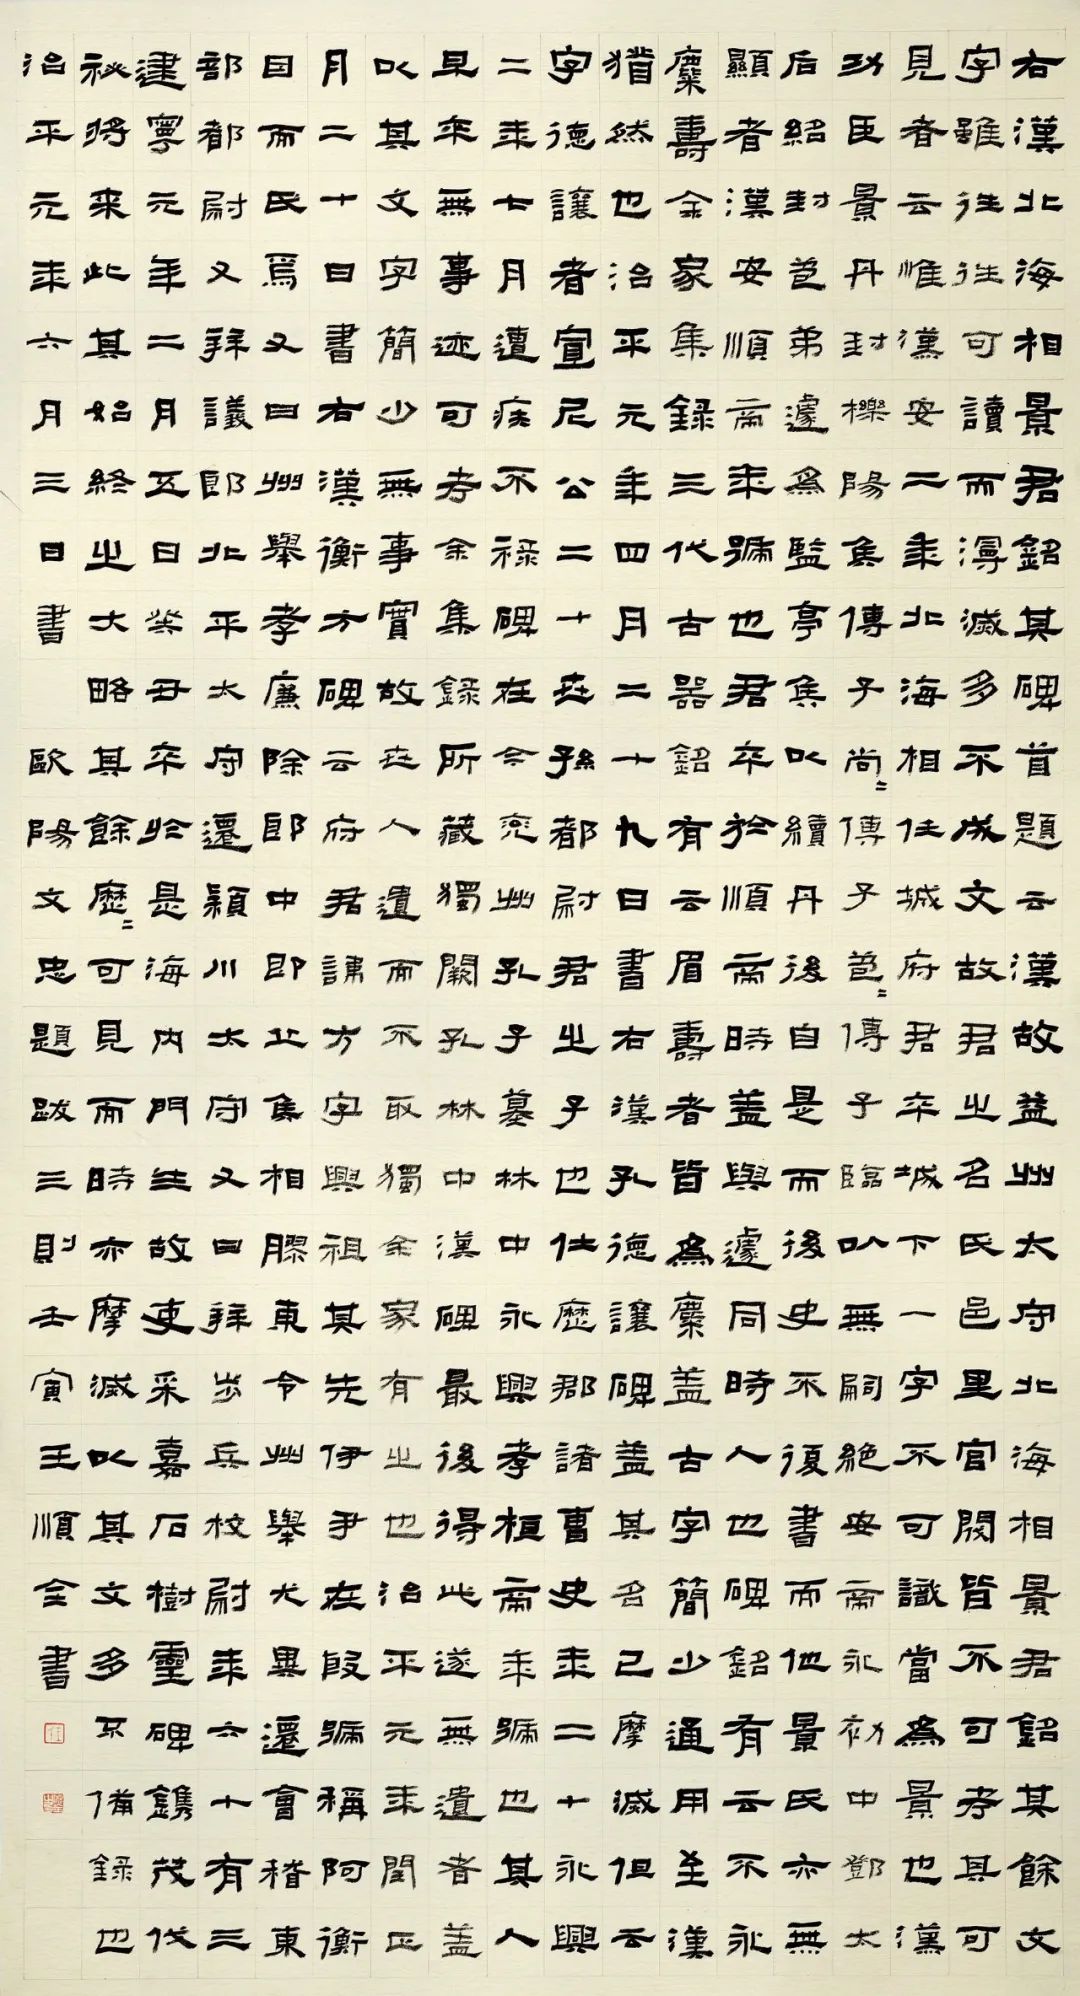 右漢北海相景君銘其碑首題云漢故益州太守北海相景君銘其餘文
字雖往往可讀而漫滅多不成文故君之名氏邑里官閥皆不可考其可
見者云惟漢安二年北海相任城府君卒城下一字不可識當為景也漢
功臣景丹封櫟陽侯傳子尚〻傳子苞〻傳子臨以無嗣絕安帝永初中鄧太
后紹封苞弟遽為監亭侯以續丹後自是而後史不復書而他景氏亦無
顯者漢安順帝年號也君卒於順帝時蓋與遽同時人也碑銘有云不永
麋壽余家集錄三代古器銘有云眉壽者皆為麋蓋古字簡少通用至漢
猶然也治平元年四月二十九日書右漢孔德讓碑蓋其名已摩滅但云
字德讓者宣尼公二十世孫都尉君之子也仕歷郡諸曹史年二十永興
二年七月遭疾不祿碑在今兗州孔子墓林中永興孝桓帝年號也其人
早卒無事迹可考余集錄所藏獨闕孔林中漢碑最後得此遂無遺者蓋
以其文字簡少無事實故世人遺而不取獨余家有之也治平元年閏正
月二十日書右漢衡方碑云府君諱方字興祖其先伊尹在殷號稱阿衡
因而氏焉又曰州舉孝廉除郎中即丘侯相膠東令州舉尤異遷會稽東
部都尉又拜議郎北平太守遷潁川太守又曰拜步兵校尉年六十有三
建寧元年二月五日癸丑卒於是海內門生故吏采嘉石樹靈碑鐫茂伐
祕將來此其始終之大略其餘歷〻可見而時亦摩滅以其文多不備錄也
治平元年六月三日書 歐陽文忠題跋三則壬寅王順全書